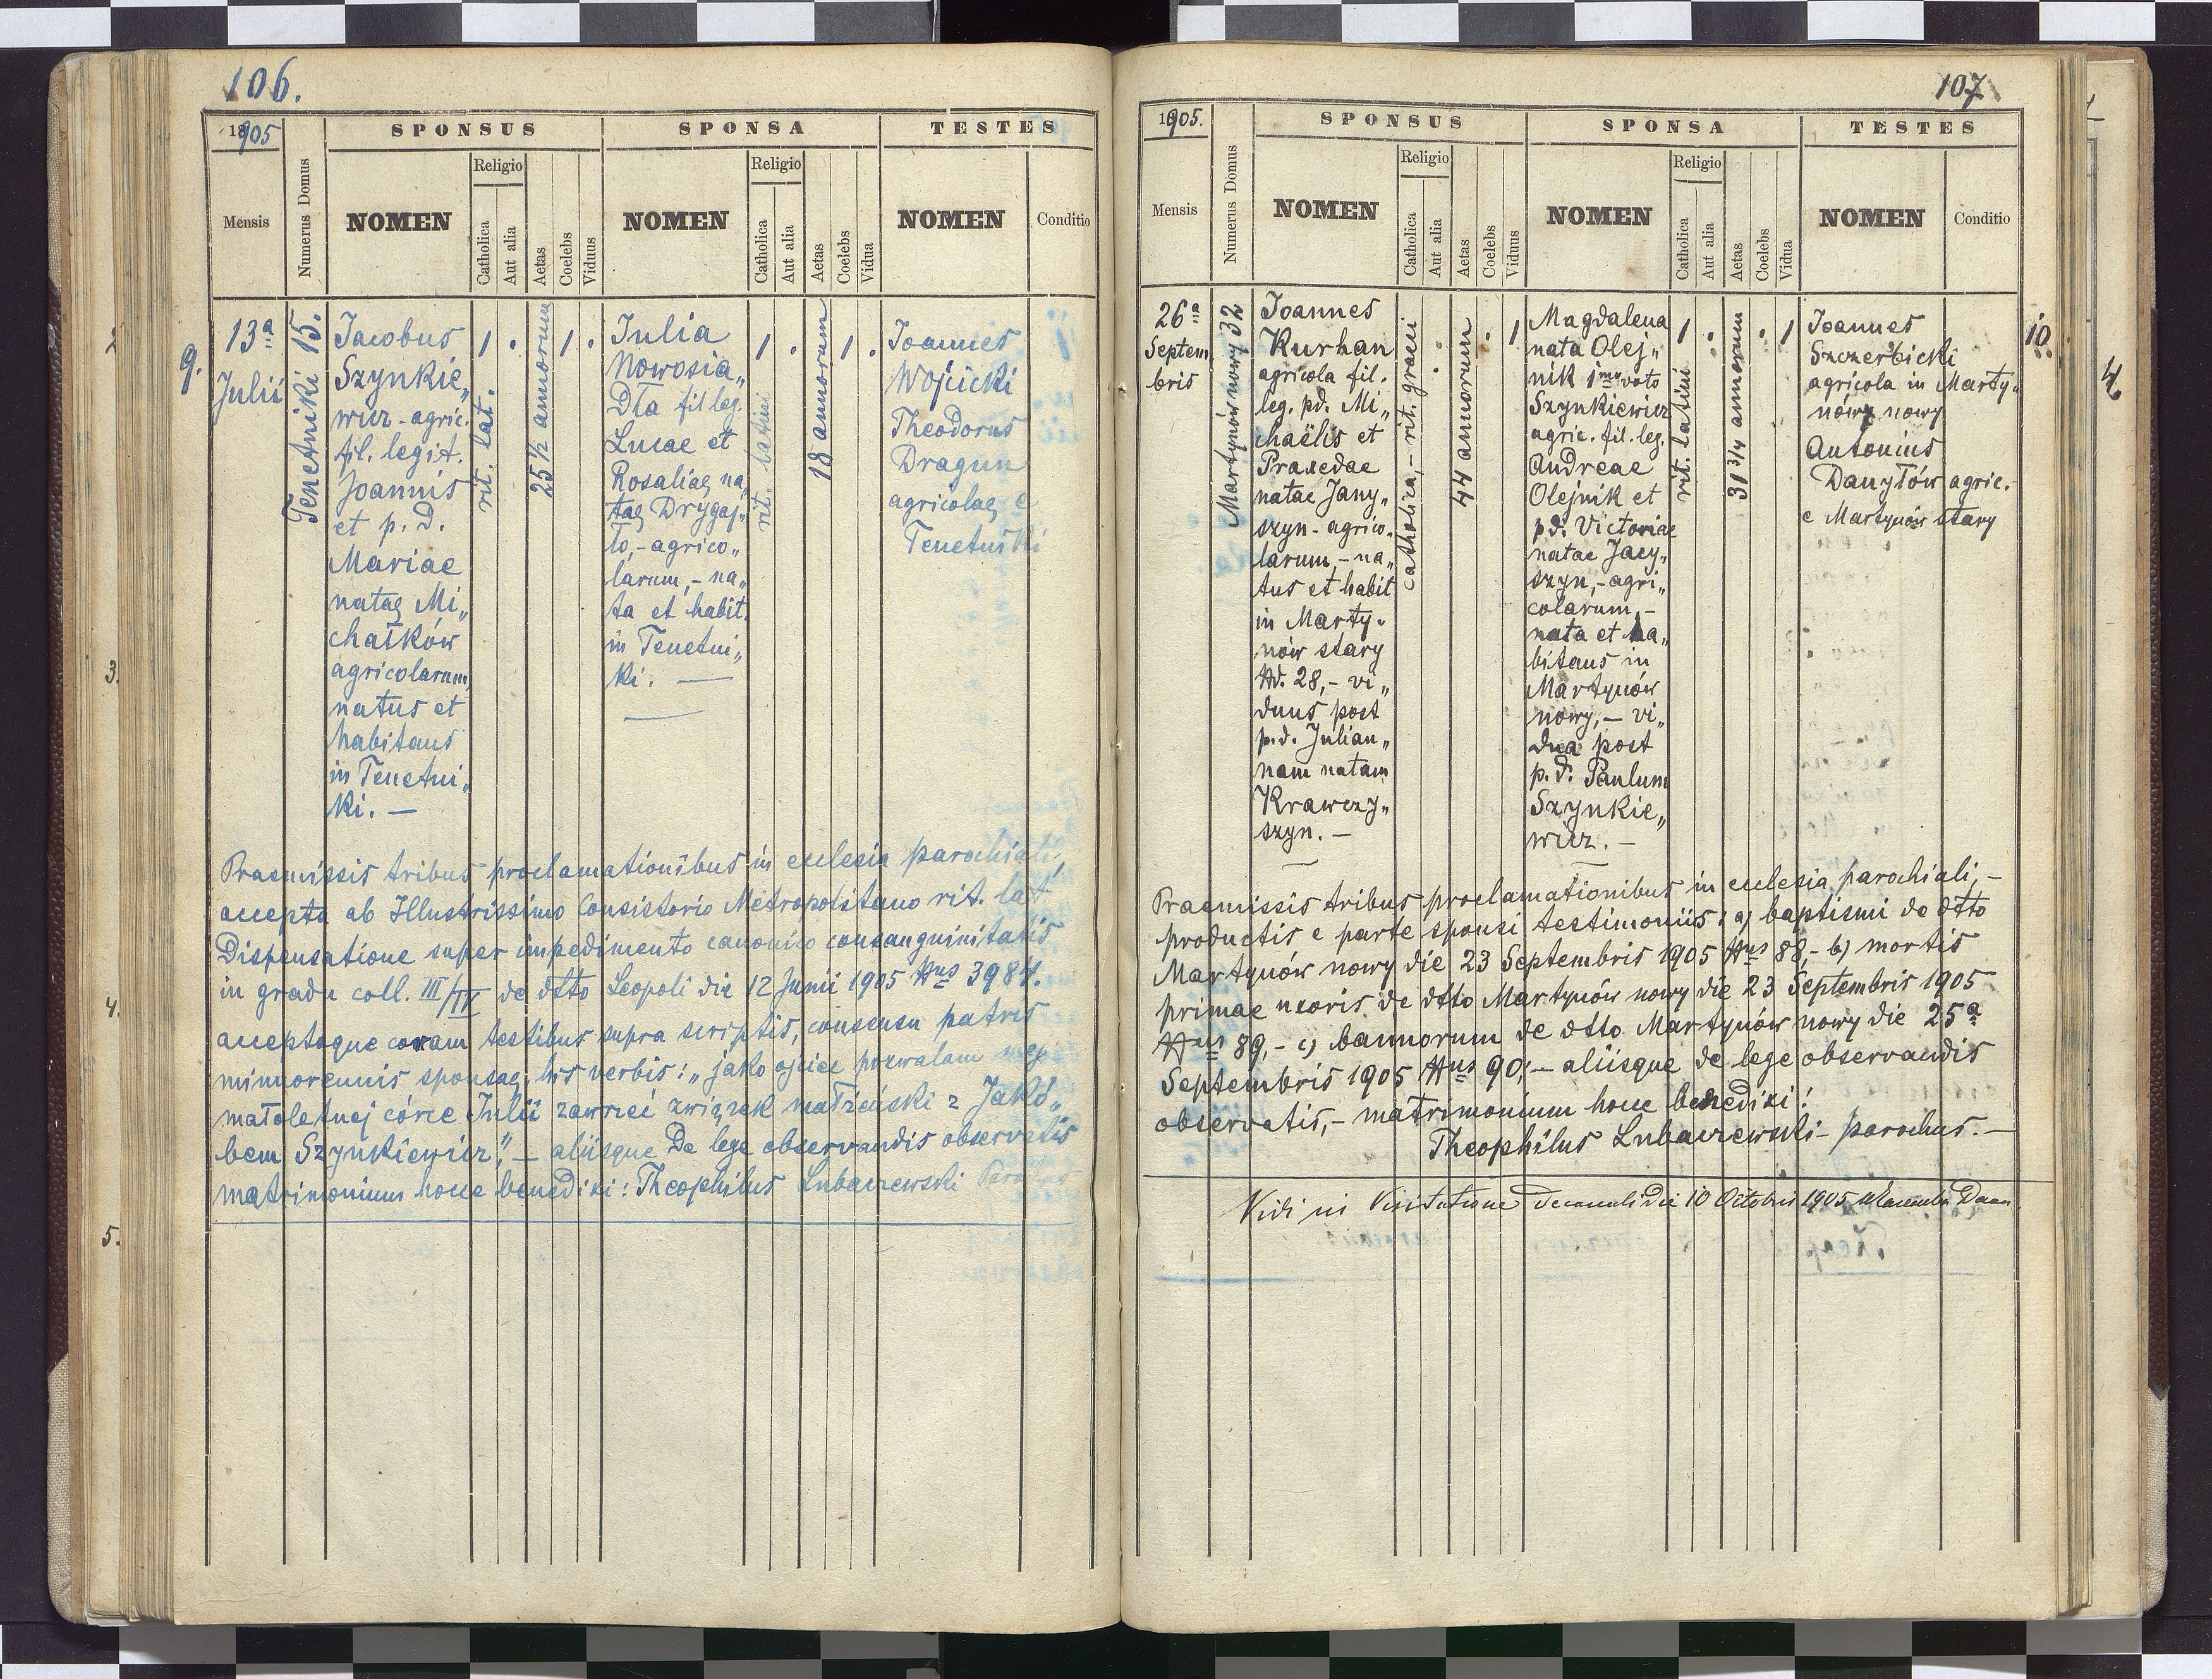 106.
1905
SPONSUS
SPONSA
TESTES
Mensis
Numerus Domus
NOMEN
Religio
Catholica
Aut alia
Aetas
Coelebs
Viduus
NOMEN
Religio
Catholica
Aut alia
Aetas
Coelebs
Vidua
NOMEN
Conditio
9.
13ª
Julii
Tenetniki 15.
Jacobus
Szynkie„
wicz - agric.
fil. legit.
Joannis
et p. d.
Mariae
natae Mi„
chałków
agricolarum,
natus et
habitans
in Tenetni„
ki. —
1 .
rit. lat.
25 1/2 annorum
1 .
Julia
Nowosia„
dła fil leg.
Lucae et
Rosaliae na„
tae Drygaj„
ło, - agrico„
larum, - na„
ta et habit.
in Tenetni„
ki. —
1 .
rit. latini
18 annorum
1 .
Joannes
Wojcicki
Theodorus
Dragun
agricolae e
Tenetniki
Praemissis tribus proclamationibus in ecclesia parochiali,
accepta ab Illustrissimo Consistorio Metropolitano rit. lat
Dispensatione super impedimento canonico consanguinitatis
in gradu coll. III/IV de dtto Leopoli die 12 Junii 1905 Nus 3984.
acceptoque coram testibus supra scriptis, consensu patris
minorennis sponsae, his verbis: „jako ojciec pozwalam mej
małoletniej córce Julii zawrzeć związek małżeński z Jakó„
bem Szynkiewicz", — aliisque de lege observandis observatis
matrimonium hocce benedixi: Theophilus Lubaczewski Parochus
107
1905.
SPONSUS
SPONSA
TESTES
Mensis
Numerus Domus
NOMEN
Religio
Catholica
Aut alia
Aetas
Coelebs
Viduus
NOMEN
Religio
Catholica
Aut alia
Aetas
Coelebs
Vidua
NOMEN
Conditio
26ª
Septem
bris
Martynów nowy 32
Joannes
Kurhan
agricola fil.
leg. pd. Mi„
chaëlis et
Praxedae
natae Jany„
szyn - agrico„
larum, - na„
tus et habit
in Marty„
nów stary
Nd. 28, - vi„
duus post
p.d. Julian„
nam natam
Krawczy„
szyn. —
catholica, - rit. graeci
44 annorum
. 1
Magdalena
nata Olej„
nik 1mo voto
Szynkiewicz
agric. fil. leg.
Andreae
Olejnik et
p.d. Victoriae
natae Jacy„
szyn, - agri„
colarum, -
nata et ha„
bitans in
Martynów
nowy, — vi„
dua post
p. d. Paulum
Szynkie„
wicz. —
1 .
rit. latini
31 3/4 annorum
. 1
Joannes
Szczerbicki
agricola in Marty„
nów nowy
Antonius
Danyłów agric.
e Martynów stary
10.
Praemissis tribus proclamationibus in ecclesia parochiali, —
productis e parte sponsi testimoniis: a) baptismi de dtto
Martynów nowy die 23 Septembris 1905 Nus 88, - b) mortis
primae uxoris de dtto Martynów nowy die 23 Septembris 1905
Nus 89, - c) bannorum de dtto Martynów nowy die 25ª
Septembris 1905 Nus 90; — aliisque de lege observandis
observatis, - matrimonium hocce benedixi:
Theophilus Lubaczewski - parochus. —
Vidi in Visitatione decanali die 10 Octobris 1905
3.
4.
5.
4